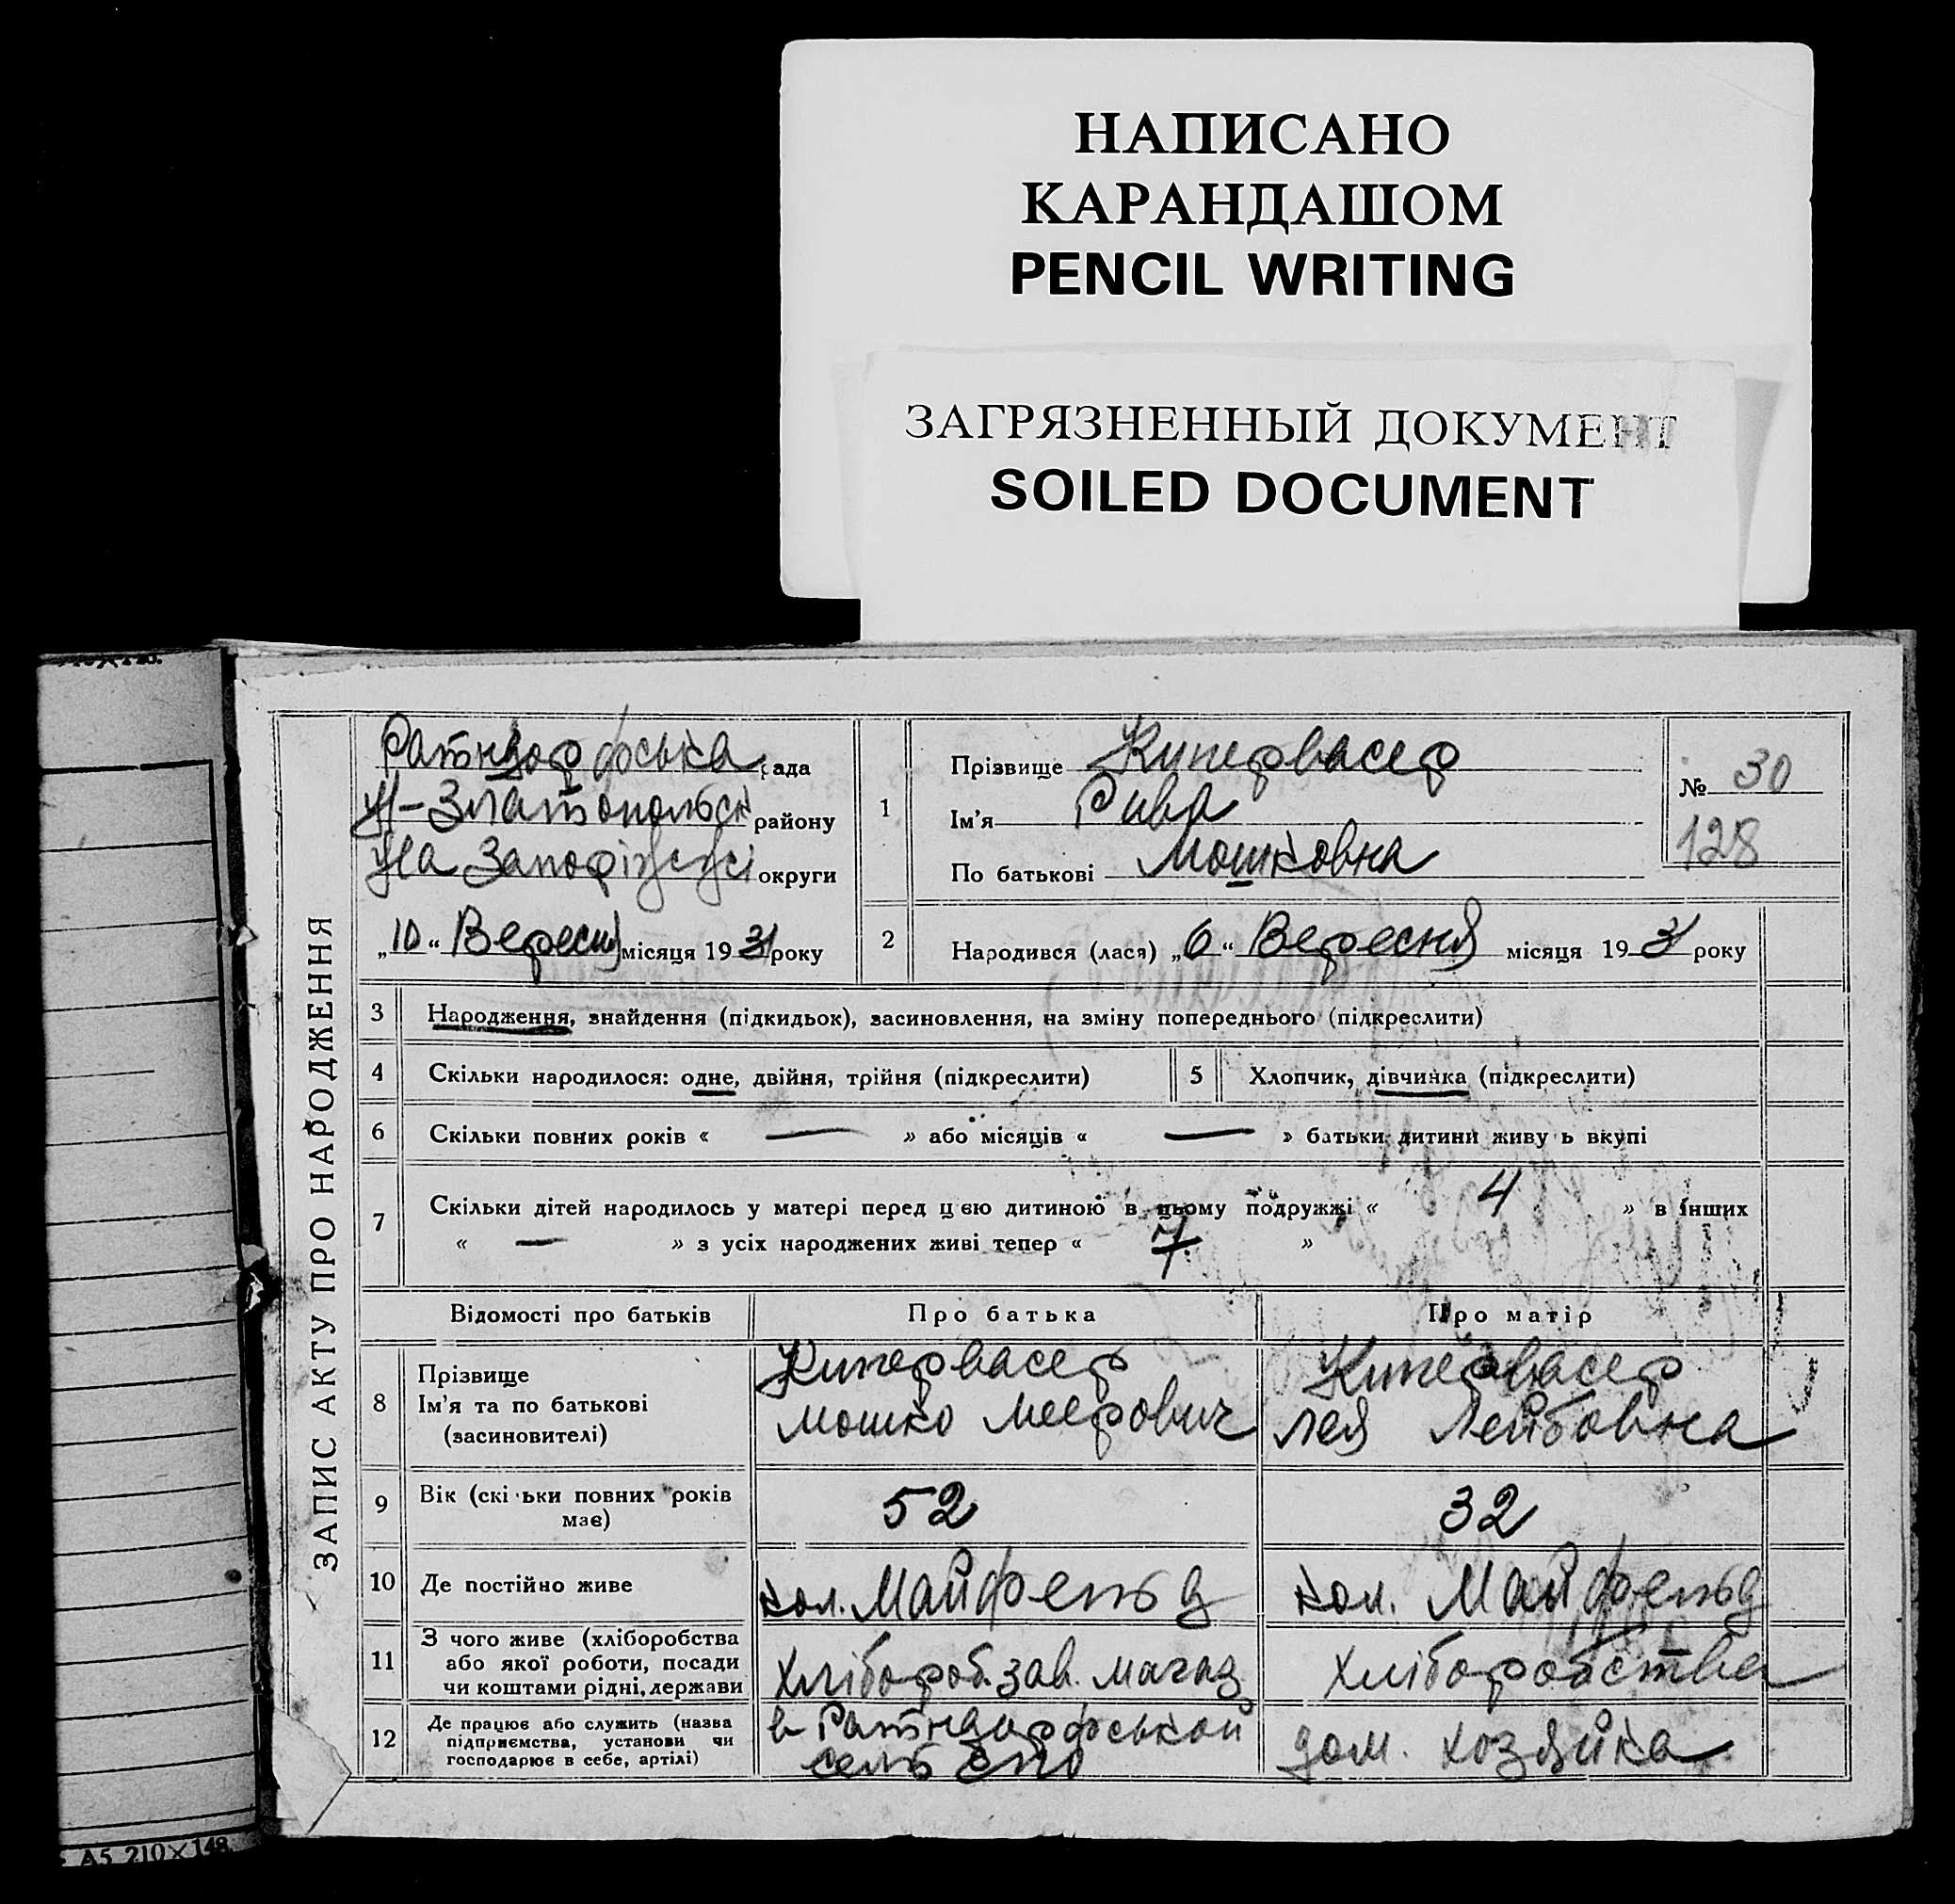 НАПИСАНО
КАРАНДАШОМ
PENCIL WRITING
ЗАГРЯЗНЕННЫЙ ДОКУМЕНТ
SOILED DOCUMENT
ЗАПИС АКТУ ПРО НАРОДЖЕННЯ
Ратндорфська рада
Н-Златопольськ району
На Запоріжжі округи
„10“ Вересня місяця 1931 року
1
Прізвище Кипервасер
Ім'я Рива
По батькові Мошковна
№ 30
128
2 Народився (лася) „6“ Вересня місяця 193 року
3 Народження, знайдення (підкидьок), засиновлення, на зміну попереднього (підкреслити)
4 Скільки народилося: одне, двійня, трійня (підкреслити)
5 Хлопчик, дівчинка (підкреслити)
6 Скільки повних років « — » або місяців « — » батьки дитини живу ь вкупі
7 Скільки дітей народилось у матері перед цією дитиною в цьому подружжі « 4 » в інших
« — » з усіх народжених живі тепер « »
Відомості про батьків Про батька Про матір
8 Прізвище
Ім'я та по батькові
(засиновителі)
Кипервасер
Мошко Меерович
Кипервасер
Лея Лейбовна
9 Вік (скі ьки повних років
має)
52
32
10 Де постійно живе
кол. Майфельд
кол. Майфельд
11 З чого живе (хліборобства
або якої роботи, посади
чи коштами рідні, держави
Хлібороб. зав. магаз
Хліборобства
12 Де працює або служить (назва
підприємства, установи чи
господарює в себе, артілі)
в Ратндорфськой
сель СПО
дом. хозяйка
А5 210×148